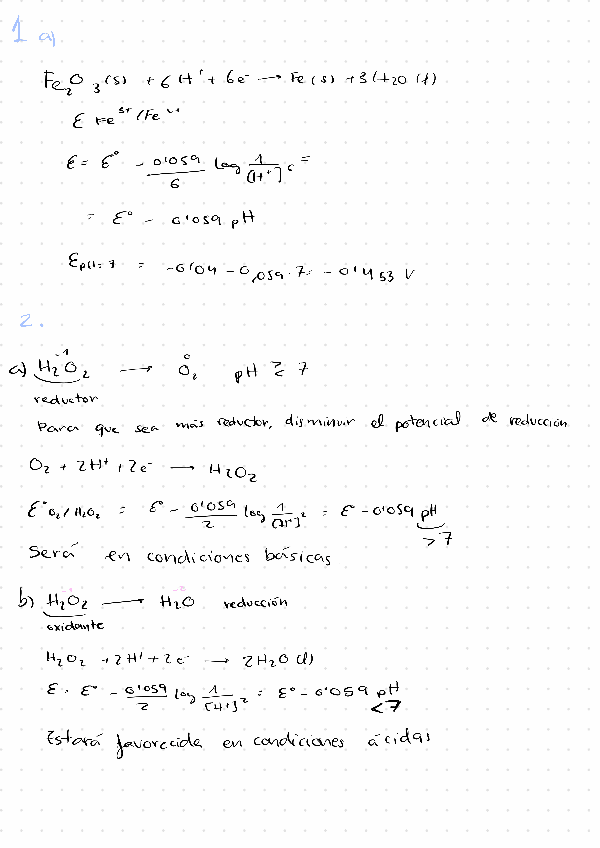 1 a)
Fe₂O₃(s) + 6H⁺ + 6e⁻ → Fe(s) + 3H₂O(l)
ε Fe³⁺/Fe
ε = ε° - 0'059/6 log 1/[H⁺]⁶ =
= ε° - 0'059 pH
ε pH=7 = -0'04 - 0,059·7 = -0'453 V
2.
a) H₂O₂ → O₂ pH ≥ 7
-1 0
reductor
Para que sea más reductor, disminuir el potencial de reducción
O₂ + 2H⁺ + 2e⁻ → H₂O₂
ε° O₂/H₂O₂ = ε° - 0'059/2 log 1/[H⁺]² = ε° - 0'059 pH
>7
Será en condiciones básicas
b) H₂O₂ → H₂O reducción
oxidante
H₂O₂ + 2H⁺ + 2e⁻ → 2H₂O(l)
ε = ε° - 0'059/2 log 1/[H⁺]² = ε° - 0'059 pH
<7
Estará favorecida en condiciones ácidas